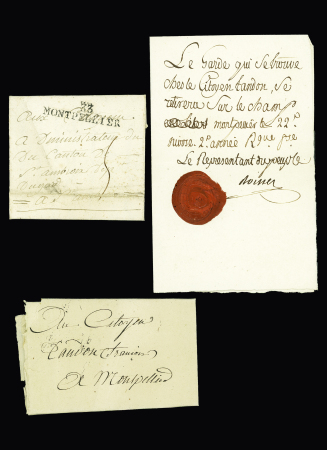 33
MONTPELLIER
Aux
Administrateurs
Du Canton
5
Le Garde qui se trouve
chez le Citoyen tandon, se
retirera Sur le champ
montpellier le 22e
nivose 2e année Rque fse
Le Représentant du peuple
boisset
Au Citoyen
tandon francois
De Montpellier